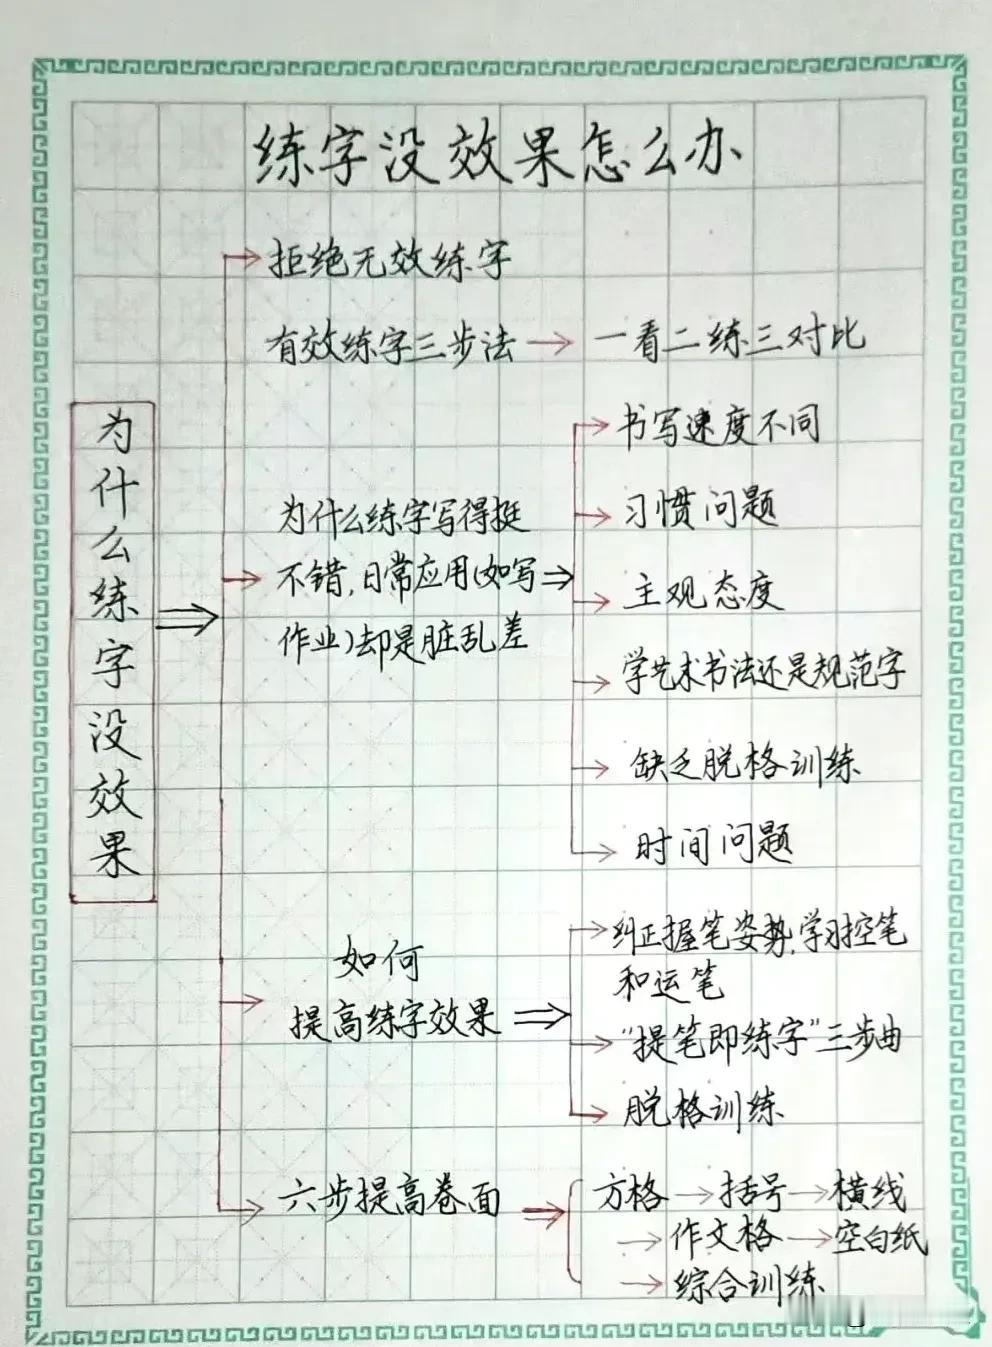 练字没效果怎么办
为什么练字没效果
拒绝无效练字
有效练字三步法→一看二练三对比
为什么练字写得挺
不错,日常应用(如写
作业)却是脏乱差
书写速度不同
习惯问题
主观态度
学艺术书法还是规范字
缺乏脱格训练
时间问题
如何
提高练字效果
纠正握笔姿势,学习控笔
和运笔
“提笔即练字”三步曲
脱格训练
六步提高卷面
方格→括号→横线
→作文格→空白纸
→综合训练